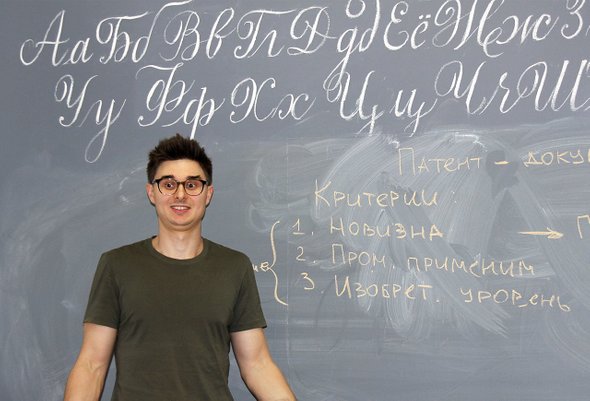 Аа Бб Вв Гг Дд Её Жж З
Уу Фф Хх Цц Чч Ш
Патент – доку
Критерии:
1. Новизна →
2. Пром. применим
3. Изобрет. уровень